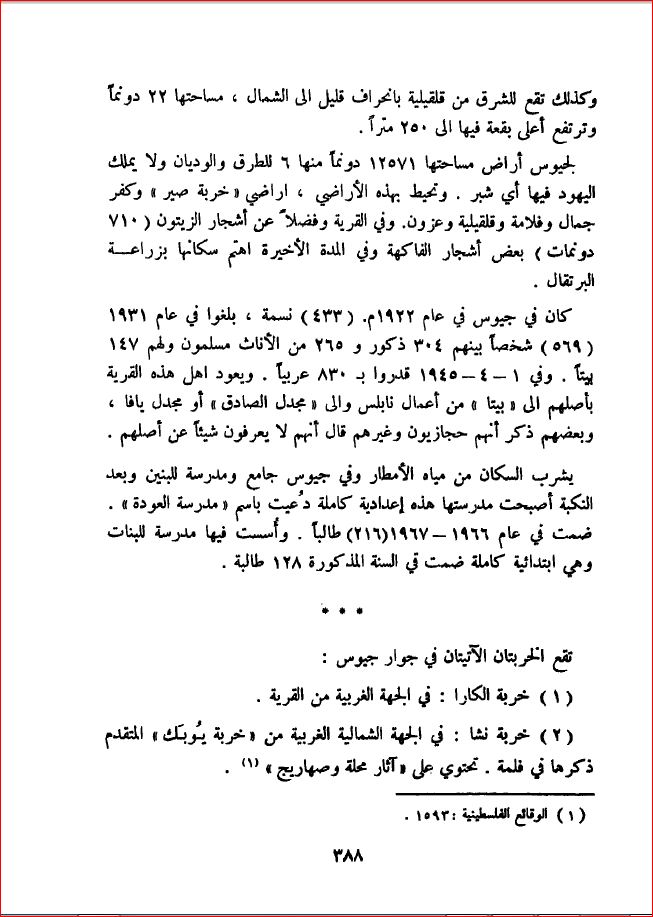 وكذلك تقع للشرق من قلقيلية بانحراف قليل الى الشمال ، مساحتها ٢٢ دونماً
وترتفع أعلى بقعة فيها الى ٢٥٠ متراً .
لجيوس أراض مساحتها ١٢٥٧١ دونماً منها ٦ للطرق والوديان ولا يملك
اليهود فيها أي شبر . وتحيط بهذه الأراضي ، اراضي « خربة صير » وكفر
جمال وفلامة وقلقيلية وعزون. وفي القرية وفضلاً عن أشجار الزيتون ( ٧١٠
دونمات ) بعض أشجار الفاكهة وفي المدة الأخيرة اهتم سكانها بزراعـــة
البرتقال .
كان في جيوس في عام ١٩٢٢م. ( ٤٣٣ ) نسمة ، بلغوا في عام ١٩٣١
( ٥٦٩ ) شخصاً بينهم ٣٠٤ ذكور و ٢٦٥ من الأناث مسلمون ولهم ١٤٧
بيتاً . وفي ١ – ٤ – ١٩٤٥ قدروا بـ ٨٣٠ عربياً . ويعود اهل هذه القرية
بأصلهم الى « بيتا » من أعمال نابلس والى « مجدل الصادق » أو مجدل يافا ،
وبعضهم ذكر أنهم حجازيون وغيرهم قال أنهم لا يعرفون شيئاً عن أصلهم .
يشرب السكان من مياه الأمطار وفي جيوس جامع ومدرسة للبنين وبعد
النكبة أصبحت مدرستها هذه إعدادية كاملة دُعيت باسم « مدرسة العودة » .
ضمت في عام ١٩٦٦ – ١٩٦٧ (٢١٦) طالباً . وأُسست فيها مدرسة للبنات
وهي ابتدائية كاملة ضمت في السنة المذكورة ١٢٨ طالبة .
* * *
تقع الخربتان الآتيتان في جوار جيوس :
( ١ ) خربة الكارا : في الجهة الغربية من القرية .
( ٢ ) خربة نشا : في الجهة الشمالية الغربية من « خربة يُوبَك » المتقدم
ذكرها في فلمة . تحتوي على « آثار محلة وصهاريج » (١) .
( ١ ) الوقائع الفلسطينية : ١٥٩٣ .
٣٨٨